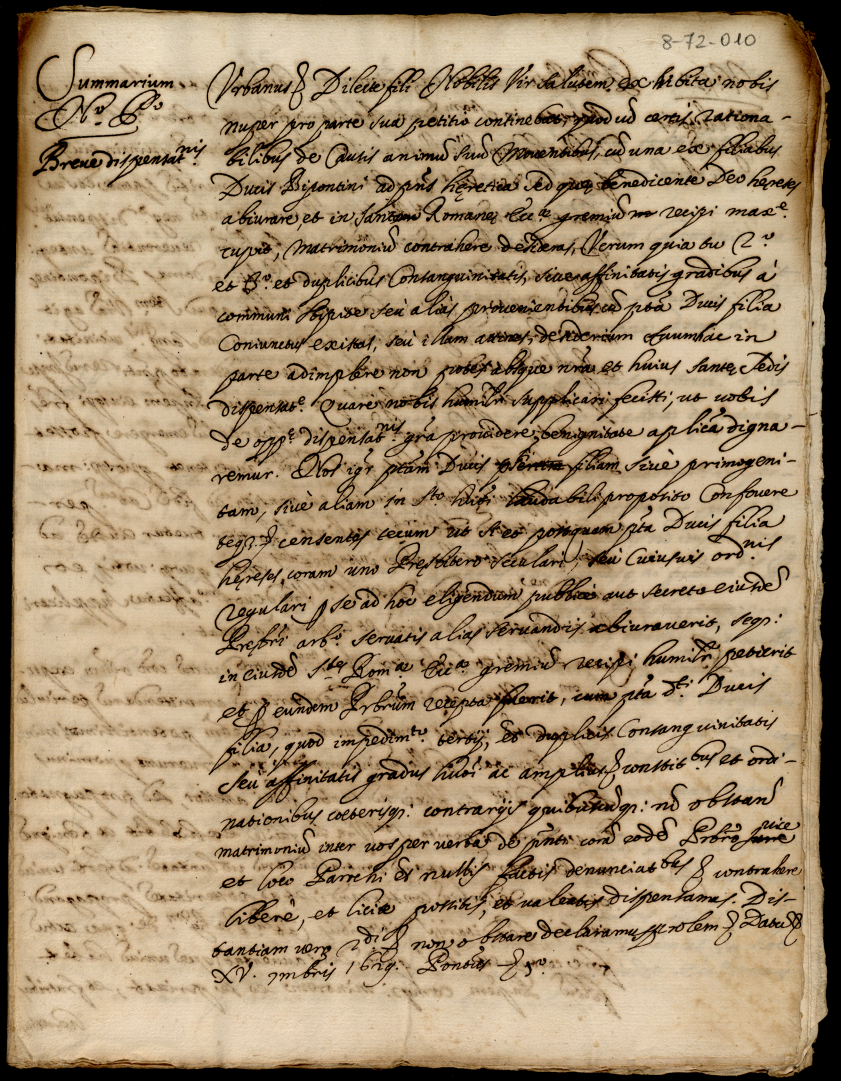 8-72-010
Summarium
N.º P.º
Breve dispensat.nis
Urbanus & Dilecte fili Nobilis Vir salutem, exhibita nobis
nuper pro parte sua petitio continebat, quod cũ certis rationa-
bilibus de Causis animũ suũ moventibus, cũ una ex filiabus
Ducis Bipontini ad pñs hęretica sed quę, benedicente Deo hereses
abiurare, et in Sanctam Romanę Ecc.ę gremiũ recipi max.e
cupit, Matrimoniũ contrahere desideras, Verum quia tu 2.º
et 3.º et duplicibus Consanguinitatis, sive affinitatis gradibus à
communi stipite seu alias provenientibus cũ pta Ducis filia
Coniunctus existas, seu illam attines, desiderium tuum hac in
parte adimplere non potes absque nrã et huius Santę Sedis
dispensat.e Quare nobis humilr supplicari fecisti, ut vobis
de opp.e dispensat.nis grã providere, benignitate aplica digna-
remur. Nos igr ptam Ducis filiam sive primogeni-
tam, sive aliam in Sto laudabili proposito Confovere
censentes tecum ut si et postquam pta Ducis filia
hęreses, coram uno Pręsbitero seculari, seu Cuiusvis ord.nis
regulari se ad hoc eligendum publicè aut secreto eiusdẽ
Pręsbri arb.º servatis alias servandis abiuraverit, seqꝫ:
in eiusdẽ Stę Rom.ę Ecc.ę gremiũ recipi humilr petierit
et ꝑ eundem Prbrum recepta fuerit, cum pta D.i Ducis
filia, quod impedim.to tertij, et duplicis Consanguinitatis
seu affinitatis gradus huõi ac amplius & constit.bus et ordi-
nationibus cœterisqꝫ: contrarijs quibuscũqꝫ: nõ obstanẽ
matrimoniũ inter vos per verba de pñti corã eodẽ Prbro vice
et loco Parrchi et nullis factis denunciat.bus & contrahere
liberè, et licitè possitis, et valeatis dispensamus. Dis-
tantiam vero 2.di & non obstare declaramus prolem & Datũ &
XV. mbris 1629. Pontũs - & 7.º